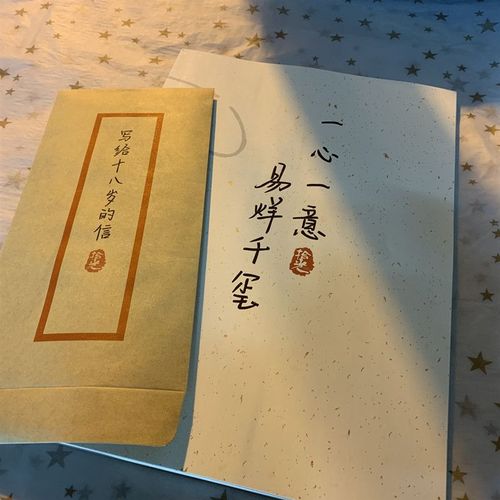 写给十八岁的信
一心一意
易烊千玺